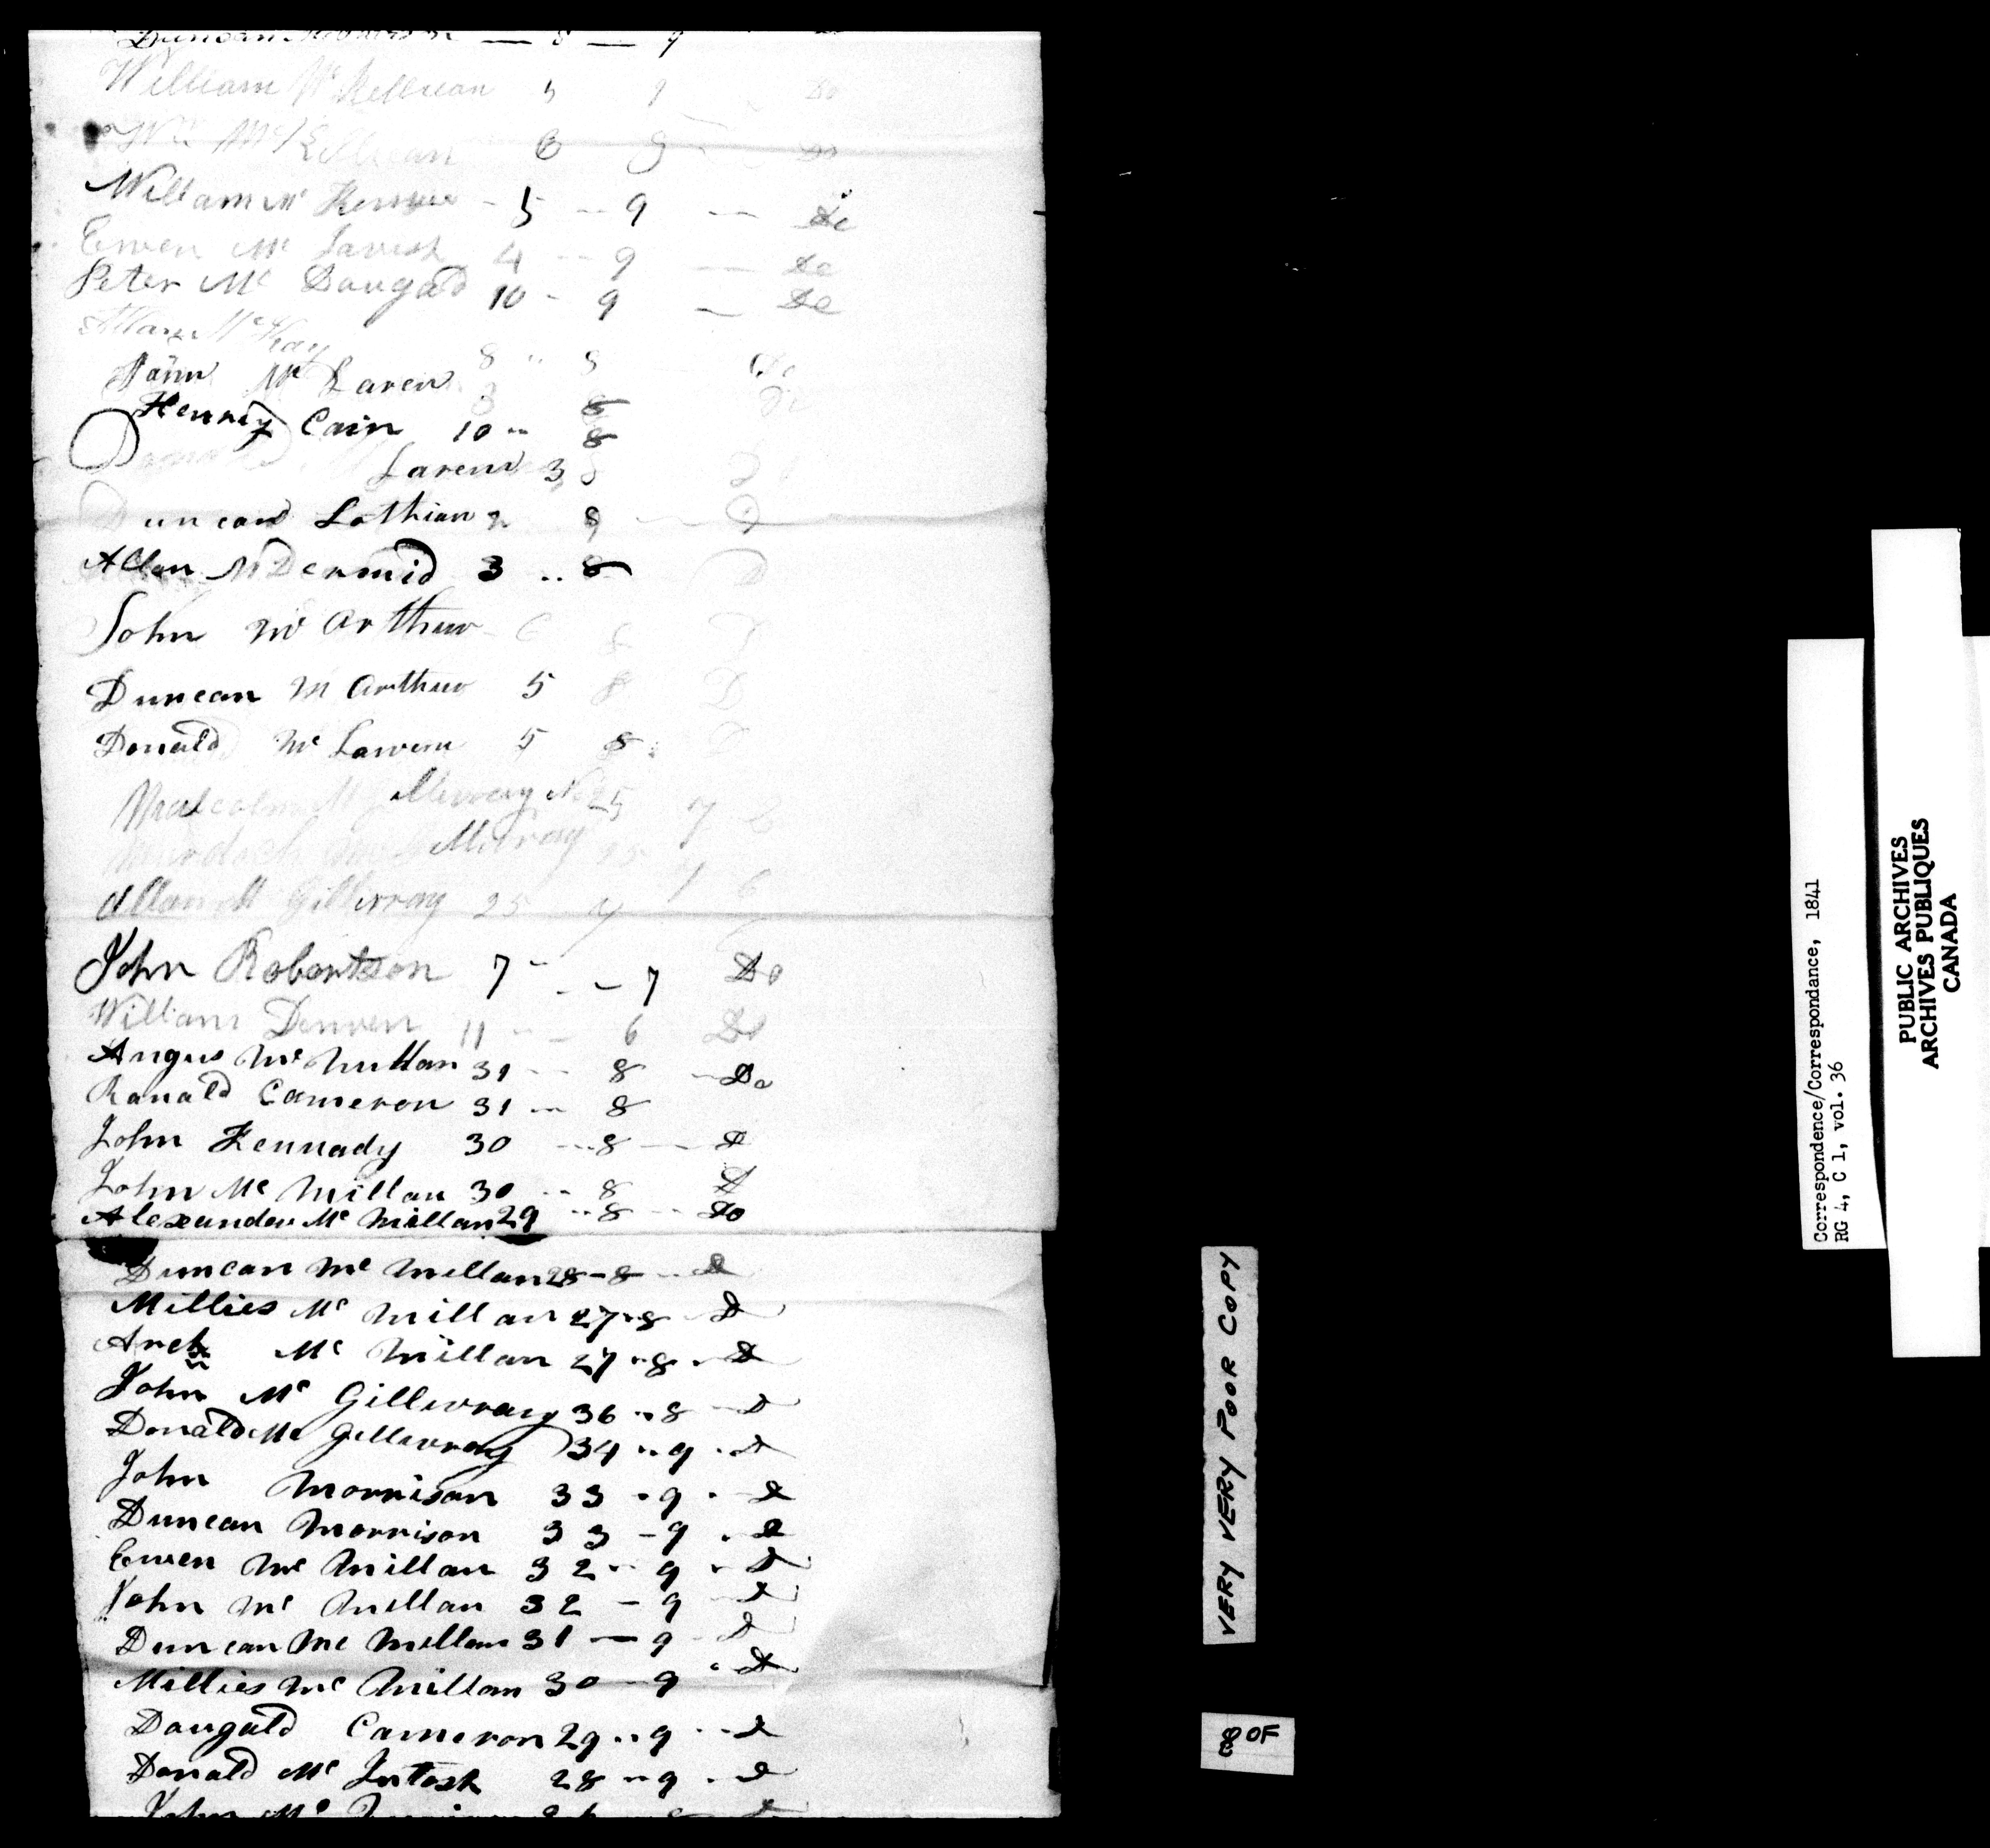 Duncan — 8 — 9
William Mc Kellican 5 9 Do
Wm McKellican 6 9 Do
William Mc Kenzie - 5 -- 9 — Do
Ewen Mc Tavish 4 -- 9 — Do
Peter Mc Dougad 10 - 9 — Do
Allan Mc Kay 8 .. 9 Do
John Mc Laren 3 8 Do
Henry Cain 10 .. 8
Donald Mc Laren 3 8 D
Duncan Lothian 2 8 — D
Allan McDermid 3 .. 8 D
John Mc Arthur 6 8 D
Duncan M Arthur 5 8 D
Donald Mc Lauren 5 8 D
Malcolm M Gillivray No 25 7
Murdoch Mc Gillivray 25 7
Allan M Gillivray 25 7
John Robertson 7 - - — 7 Do
William Denven 11 -- 6 Do
Angus Mc Millan 31 -- 8 - Do
Ranald Cameron 31 -- 8
John Kennady 30 --- 8 — D
John Mc Millan 30 -- 8 D
Alexander Mc Millan 29 -- 8 -- Do
Duncan Mc Millan 28 - 8 -- D
Millies Mc Millan 27 .. 8 D
Arch Mc Millan 27 .. 8 . D
John Mc Gillivray 36 .. 8 D
Donald Mc Gillivray 34 .. 9 . D
John Morrison 33 - 9 . D
Duncan Morrison 33 - 9 . D
Ewen Mc Millan 32 .. 9 . D
John Mc Millan 32 - 9 . D
Duncan Mc Millan 31 — 9 - D
Millies Mc Millan 30 - 9 . D
Dougald Cameron 29 .. 9 .. D
Donald Mc Intosh 28 .. 9 . D
John Mc
VERY VERY POOR COPY
8 OF
Correspondence/Correspondance, 1841
RG 4, C 1, vol. 36
PUBLIC ARCHIVES
ARCHIVES PUBLIQUES
CANADA